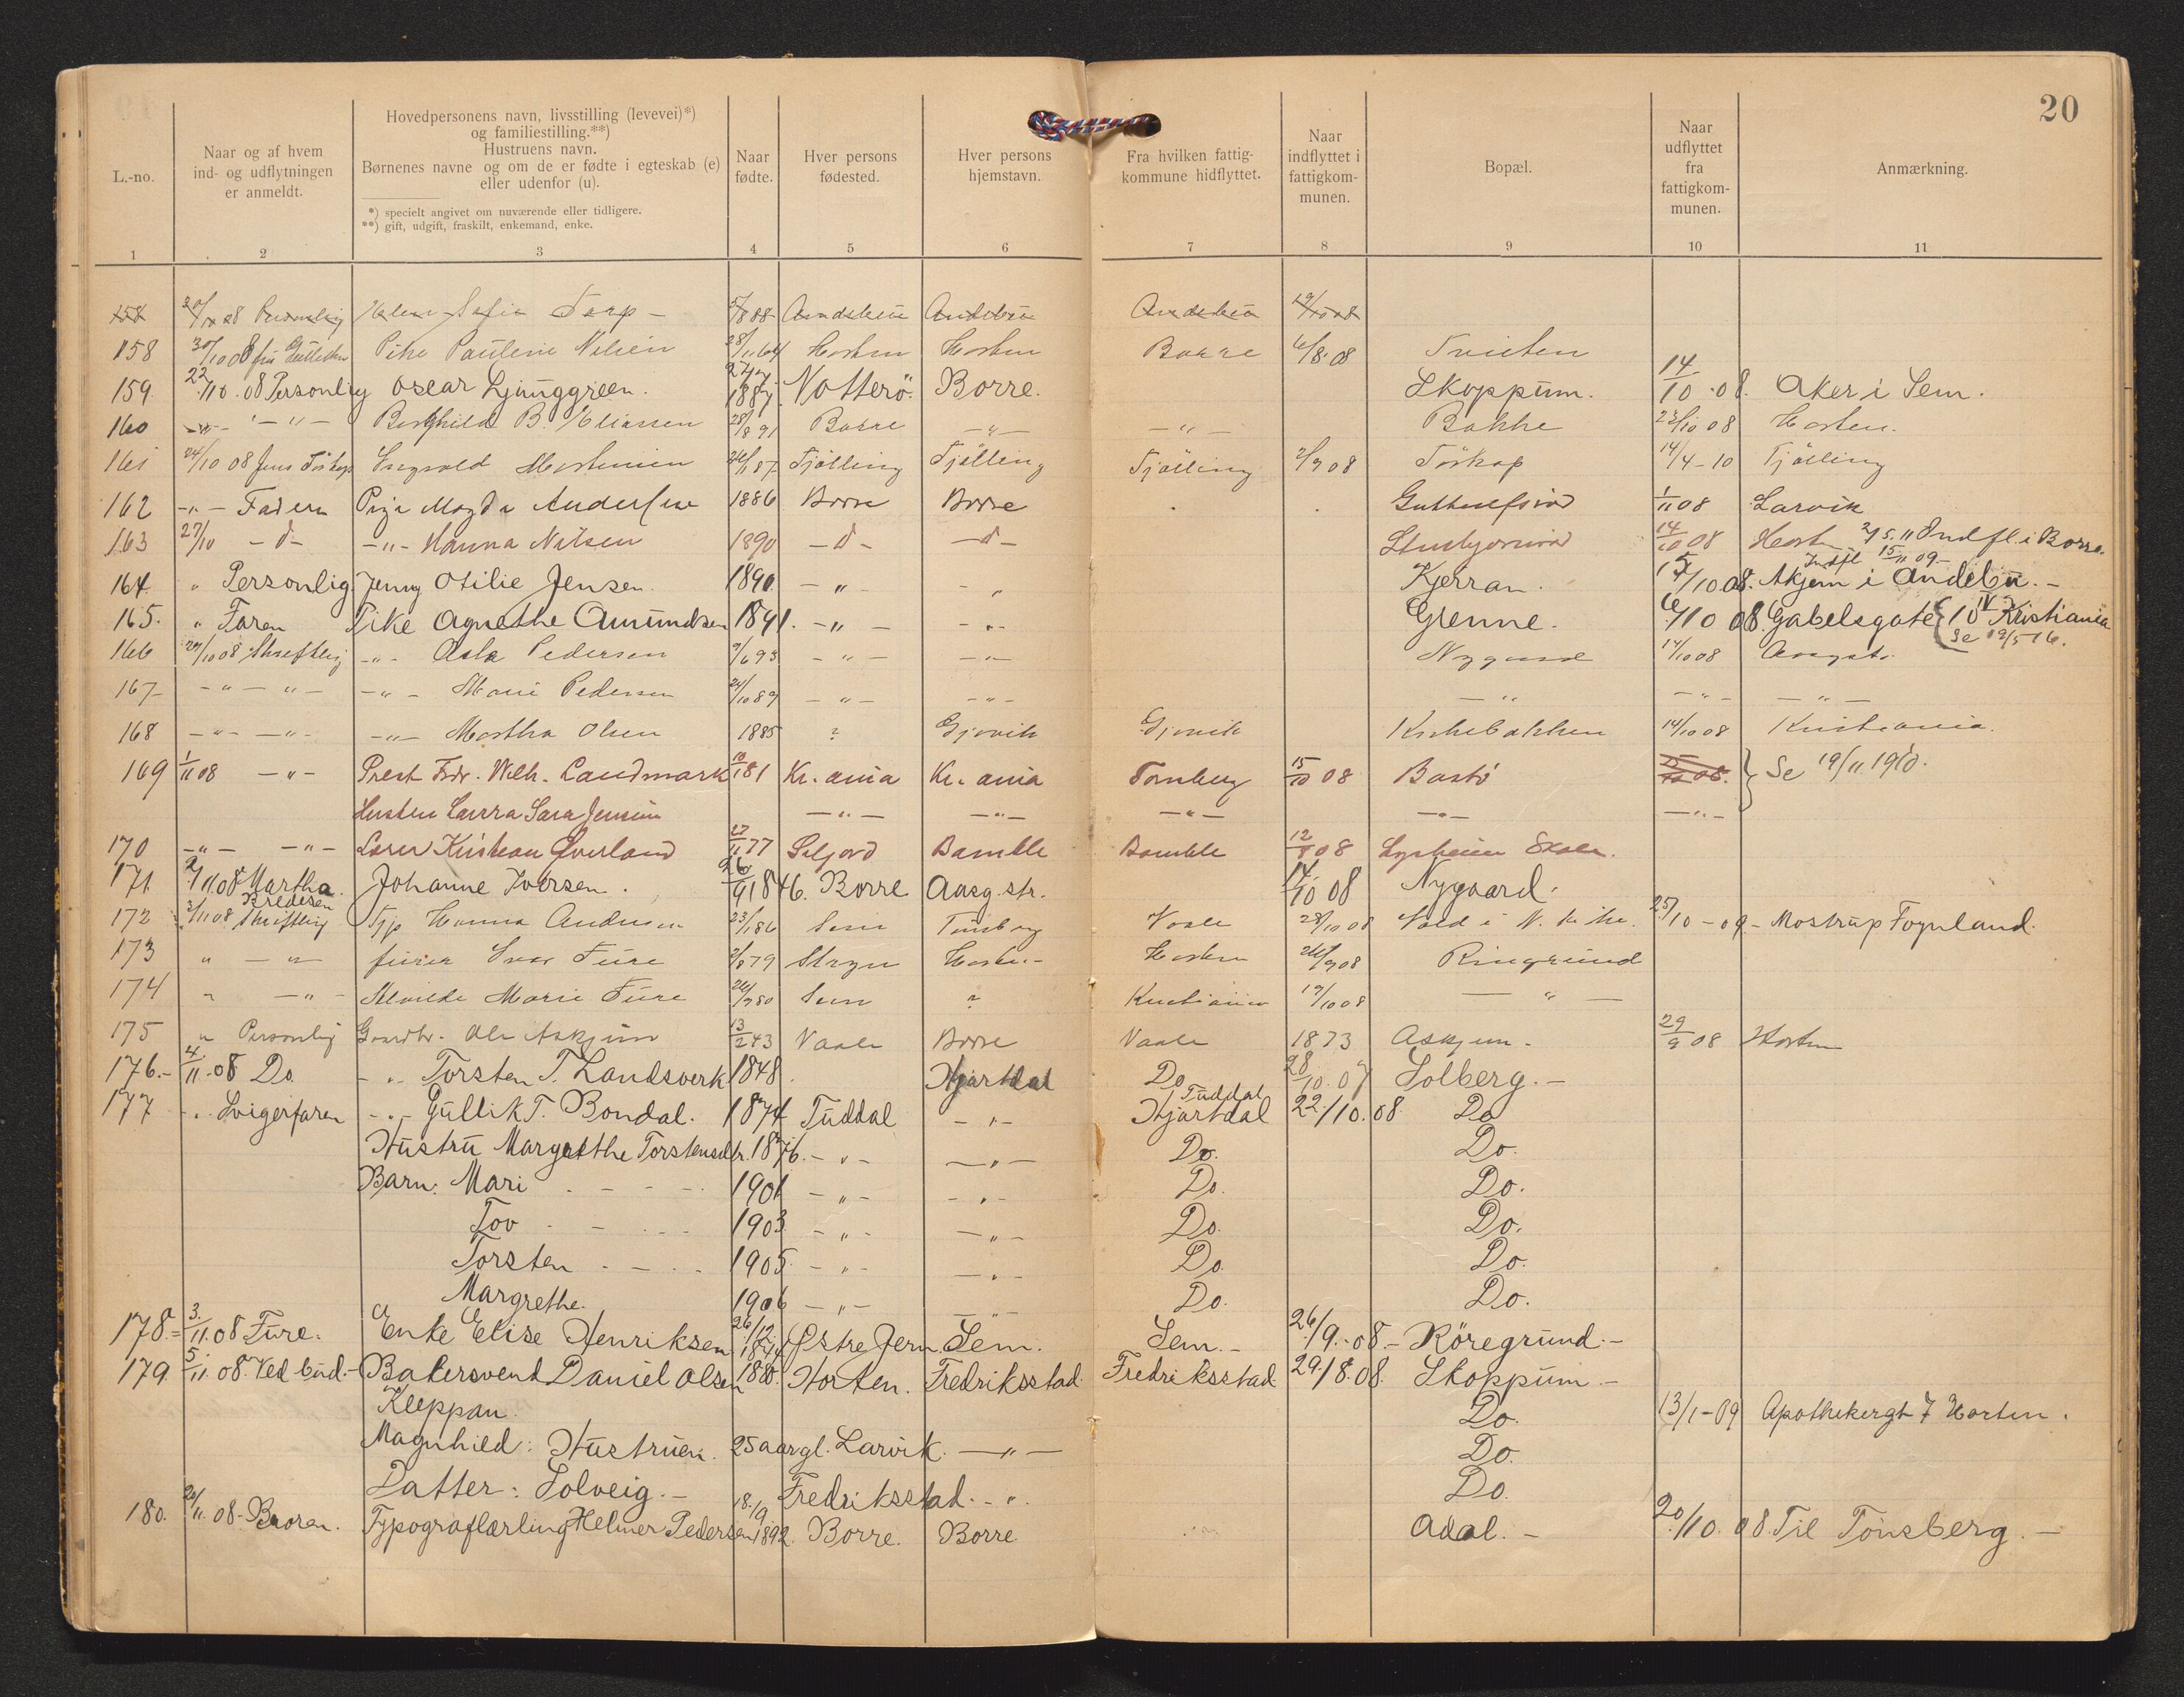 20
L.-no.
Naar og af hvem ind- og udflytningen er anmeldt.
Hovedpersonens navn, livsstilling (levevei)*) og familiestilling.**)
Hustruens navn.
Børnenes navne og om de er fødte i egteskab (e) eller udenfor (u).
*) specielt angivet om nuværende eller tidligere.
**) gift, udgift, fraskilt, enkemand, enke.
Naar fødte.
Hver persons fødested.
Hver persons hjemstavn.
Fra hvilken fattigkommune hidflyttet.
Naar indflyttet i fattigkommunen.
Bopæl.
Naar udflyttet fra fattigkommunen.
Anmærkning.
1 2 3 4 5 6 7 8 9 10 11
158 Personlig Sofie Torp - 88
158 30/10 08 Pike Pauline Nilsen 28/11 64 Horten Horten Borre 6/8 08 Tveiten
159. 22/10.08 Personlig Oscar Ljunggreen. 1887. Nøtterö. Borre. Skoppum. 14/10.08. Aker i Sem.
160 -"- -"- Borghild B. Eliassen 28/8 91 Borre -"- -"- Bakke 23/10 08 Horten.
161 24/10 08 Jens Ingvald Mortensen 87 Tjölling Tjölling Tjölling 2/9 08 14/4-10 Tjölling
162 -"- Faderen Pige Magda Andersen 1886 Borre Borre 1/11 08 Larvik
163 27/10 -d- -"- Hanna Nilsen 1890 -d- -d- 14/10 08 Horten Indfl. i Borre.
164. " Personlig. Jenny Otilie Jensen. 1890. -"- " Kjerran. 08. Indfl 15/11 09- Askjem i Andebu.-
165. " Faren Pike Agnethe Amundsen 1891. -"- -"- Grenne. 6/10 08. Gabelsgate 10 IV Kristiania
166 08 Skriftlig -"- Asta Pedersen 93 -"- -"- Nygaard 14/10 08 Se 16.
167 -"- -"- -"- Marie Pedersen 24/10 89 -"- -"- -"- -"- -"-
168 -"- -"- -"- Martha Olsen 1885 ? Gjøvik Gjøvik Kirkebakken 14/10 08 Kristiania.
169 1/11 08 -"- Prest Fredr. Wilh. Landmark 81 Kr.ania Kr.ania Tønsberg 15/10 08 Bastö 08. Se 19/11 1910.
Hustru Laura Sara Jensine -"- -"- -"- -"- -"-
170 -"- -"- Lærer Kristian Qverland 77 Seljord Bamble Bamble 08 Lysheim Skole.
171. 2/11.08 Martha Bredesen Johanne Iversen. 26/9 1846. Borre Aasg.str. 14/10 08 Nygaard.
172 3/11 08 Skriftlig Hanna Andersen 23/1 86 Sem Tønsberg Vaale 28/10 08 Vold i 25/10-09- Mostrup Foynland.
173 " -"- Ivar Fure 79 Stryn Horten- Horten 08 Ringrund
174 " -"- Alvilde Marie Fure 80 Sem " Kristiania 19/10 08 -"-
175 " Personlig Gaardbr. Ole Askjum 13/2 43 Vaale Borre Vaale 1873 Askjum. 29/9 08 Horten
176.- 4/11.08 Do. -"- Torsten T. Landsverk 1848. Hjartdal Do 28/10.07 Solberg.-
177 -"- Svigerfaren -"- Gullik T. Bondal. 1874 Tuddal -"- Tuddal Hjartdal 22./10.08. Do
Hustru Margrethe Torstensdtr. 1876. -"- -"- Do. Do.
Barn: Mari 1901 -"- -"- Do. Do.
Tov 1903 -"- -"- Do. Do.
Torsten 1905 -"- -"- Do. Do.
Margrethe. 1906 -"- -"- Do. Do.
178.= 3./11.08 Fure. Enke Elise Henriksen 26/12 Østre Jern. Sem. Sem.- 26/9.-08.- Röregrund.-
179. 5/11.08. Ved bud.- Bakersvend Daniel Olsen 1880. Horten. Fredriksstad. Fredriksstad 29./8.08. Skoppum.-
Kleppan. Do. 13/1-09 Apothekergt 7 Horten.
Magnhild: Hustruen. 25aargl. Larvik. -"- Do.
Datter: Solveig.- 18./9 Fredriksstad. -"- Do.
180. 20/11.08.- Broren. Typograflærling Helmer Pedersen 1892. Borre. Borre. Adal.- 20./10.08. Til Tönsberg.-